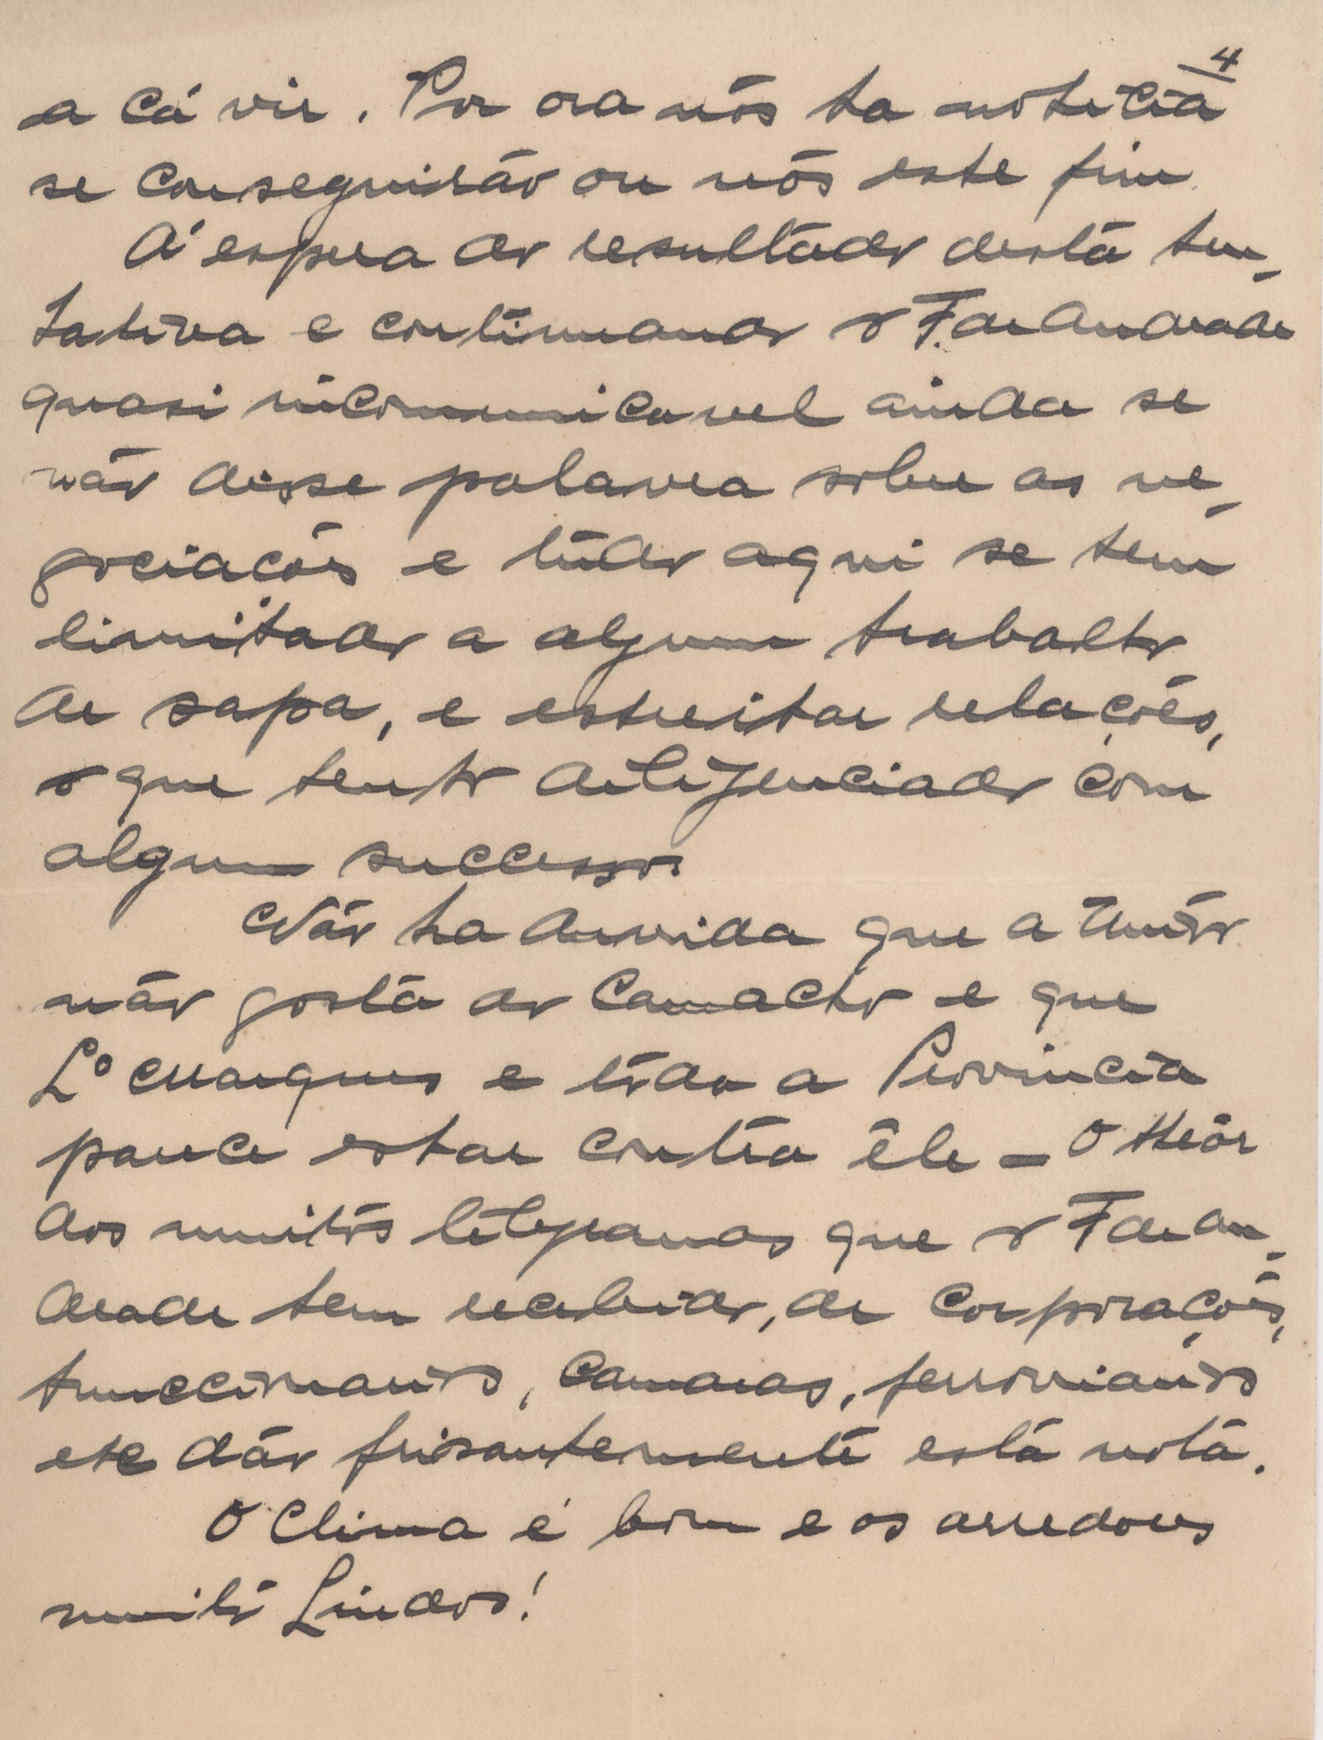 4
a cá vir. Por ora não ha noticia
se conseguirão ou não este fim.
Á espera do resultado desta ten-
tativa e continuando o F. de Andrade
quasi incomunicavel ainda se
não disse palavra sobre as ne-
gociacões e tudo aqui se tem
limitado a algum trabalho
de sapa, e estreitar relações,
o que tenho deligenciado com
algum successo.
Não ha duvida que a União
não gosta do Camacho e que
Lº Marques e toda a Provincia
parece estar contra êle = O theôr
dos muitos telegramas que o F de An-
drade tem recebido, de corporações,
funccionarios, Camaras, ferroviarios
etc dão frisantemente esta nota.
O Clima é bom e os arredores
muito Lindos!